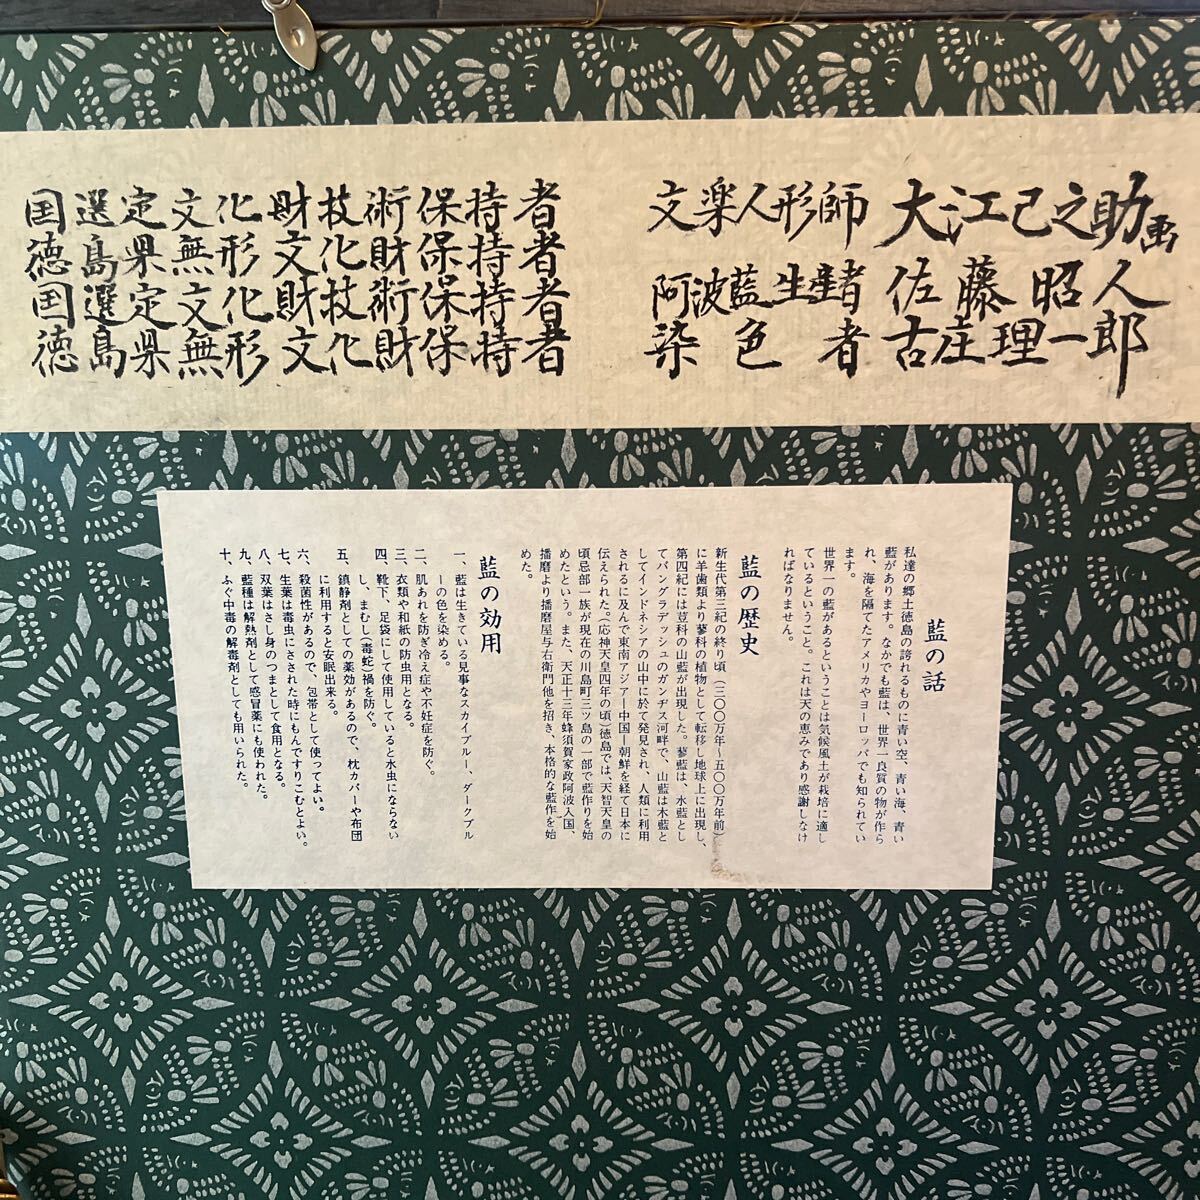 国選定文化財技術保持者
徳島県無形文化財保持者
国選定文化財技術保持者
徳島県無形文化財保持者
文楽人形師 大江巳之助画
阿波藍生産者 佐藤昭人
染色者 古庄理一郎
藍の話
私達の郷土徳島の誇れるものに青い空、青い海、青い
藍があります。なかでも藍は、世界一良質の物が作ら
れ、海を隔てたアメリカやヨーロッパでも知られてい
ます。
世界一の藍があるということは気候風土が栽培に適し
ているということ。これは天の恵みであり感謝しなけ
ればなりません。
藍の歴史
新生代第三紀の終り頃(三〇〇万年〜五〇〇万年前)
に羊歯類より蓼科の植物として転移し地球上に出現し、
第四紀には荳科の山藍が出現した。蓼藍は、水藍とし
てバングラデッシュのガンヂス河畔で、山藍は木藍と
してインドネシアの山中に於て発見され、人類に利用
されるに及んで東南アジアー中国ー朝鮮を経て日本に
伝えられた。(応神天皇四年の頃)徳島では、天智天皇の
頃忌部一族が現在の川島町三ツ島の一部で藍作りを始
めたという。また、天正十三年蜂須賀家政阿波入国、
播磨より播磨屋与右衛門他を招き、本格的な藍作を始
めた。
藍の効用
一、藍は生きている見事なスカイブルー、ダークブル
ーの色を染める。
二、肌あれを防ぎ冷え症や不妊症を防ぐ。
三、衣類や和紙の防虫用となる。
四、靴下、足袋にして使用していると水虫にならない
し、まむし(毒蛇)禍を防ぐ。
五、鎮静剤としての薬効があるので、枕カバーや布団
に利用すると安眠出来る。
六、殺菌性があるので、包帯として使ってよい。
七、生葉は毒虫にさされた時にもんですりこむとよい。
八、双葉はさし身のつまとして食用となる。
九、藍種は解熱剤として感冒薬にも使われた。
十、ふぐ中毒の解毒剤としても用いられた。